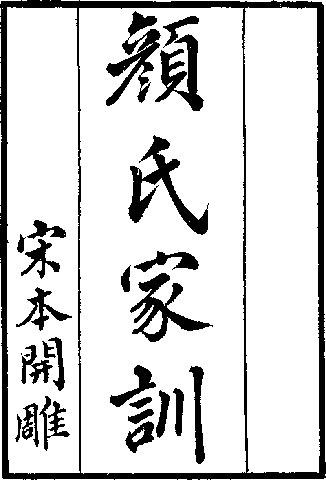 顏氏家訓
宋本開雕